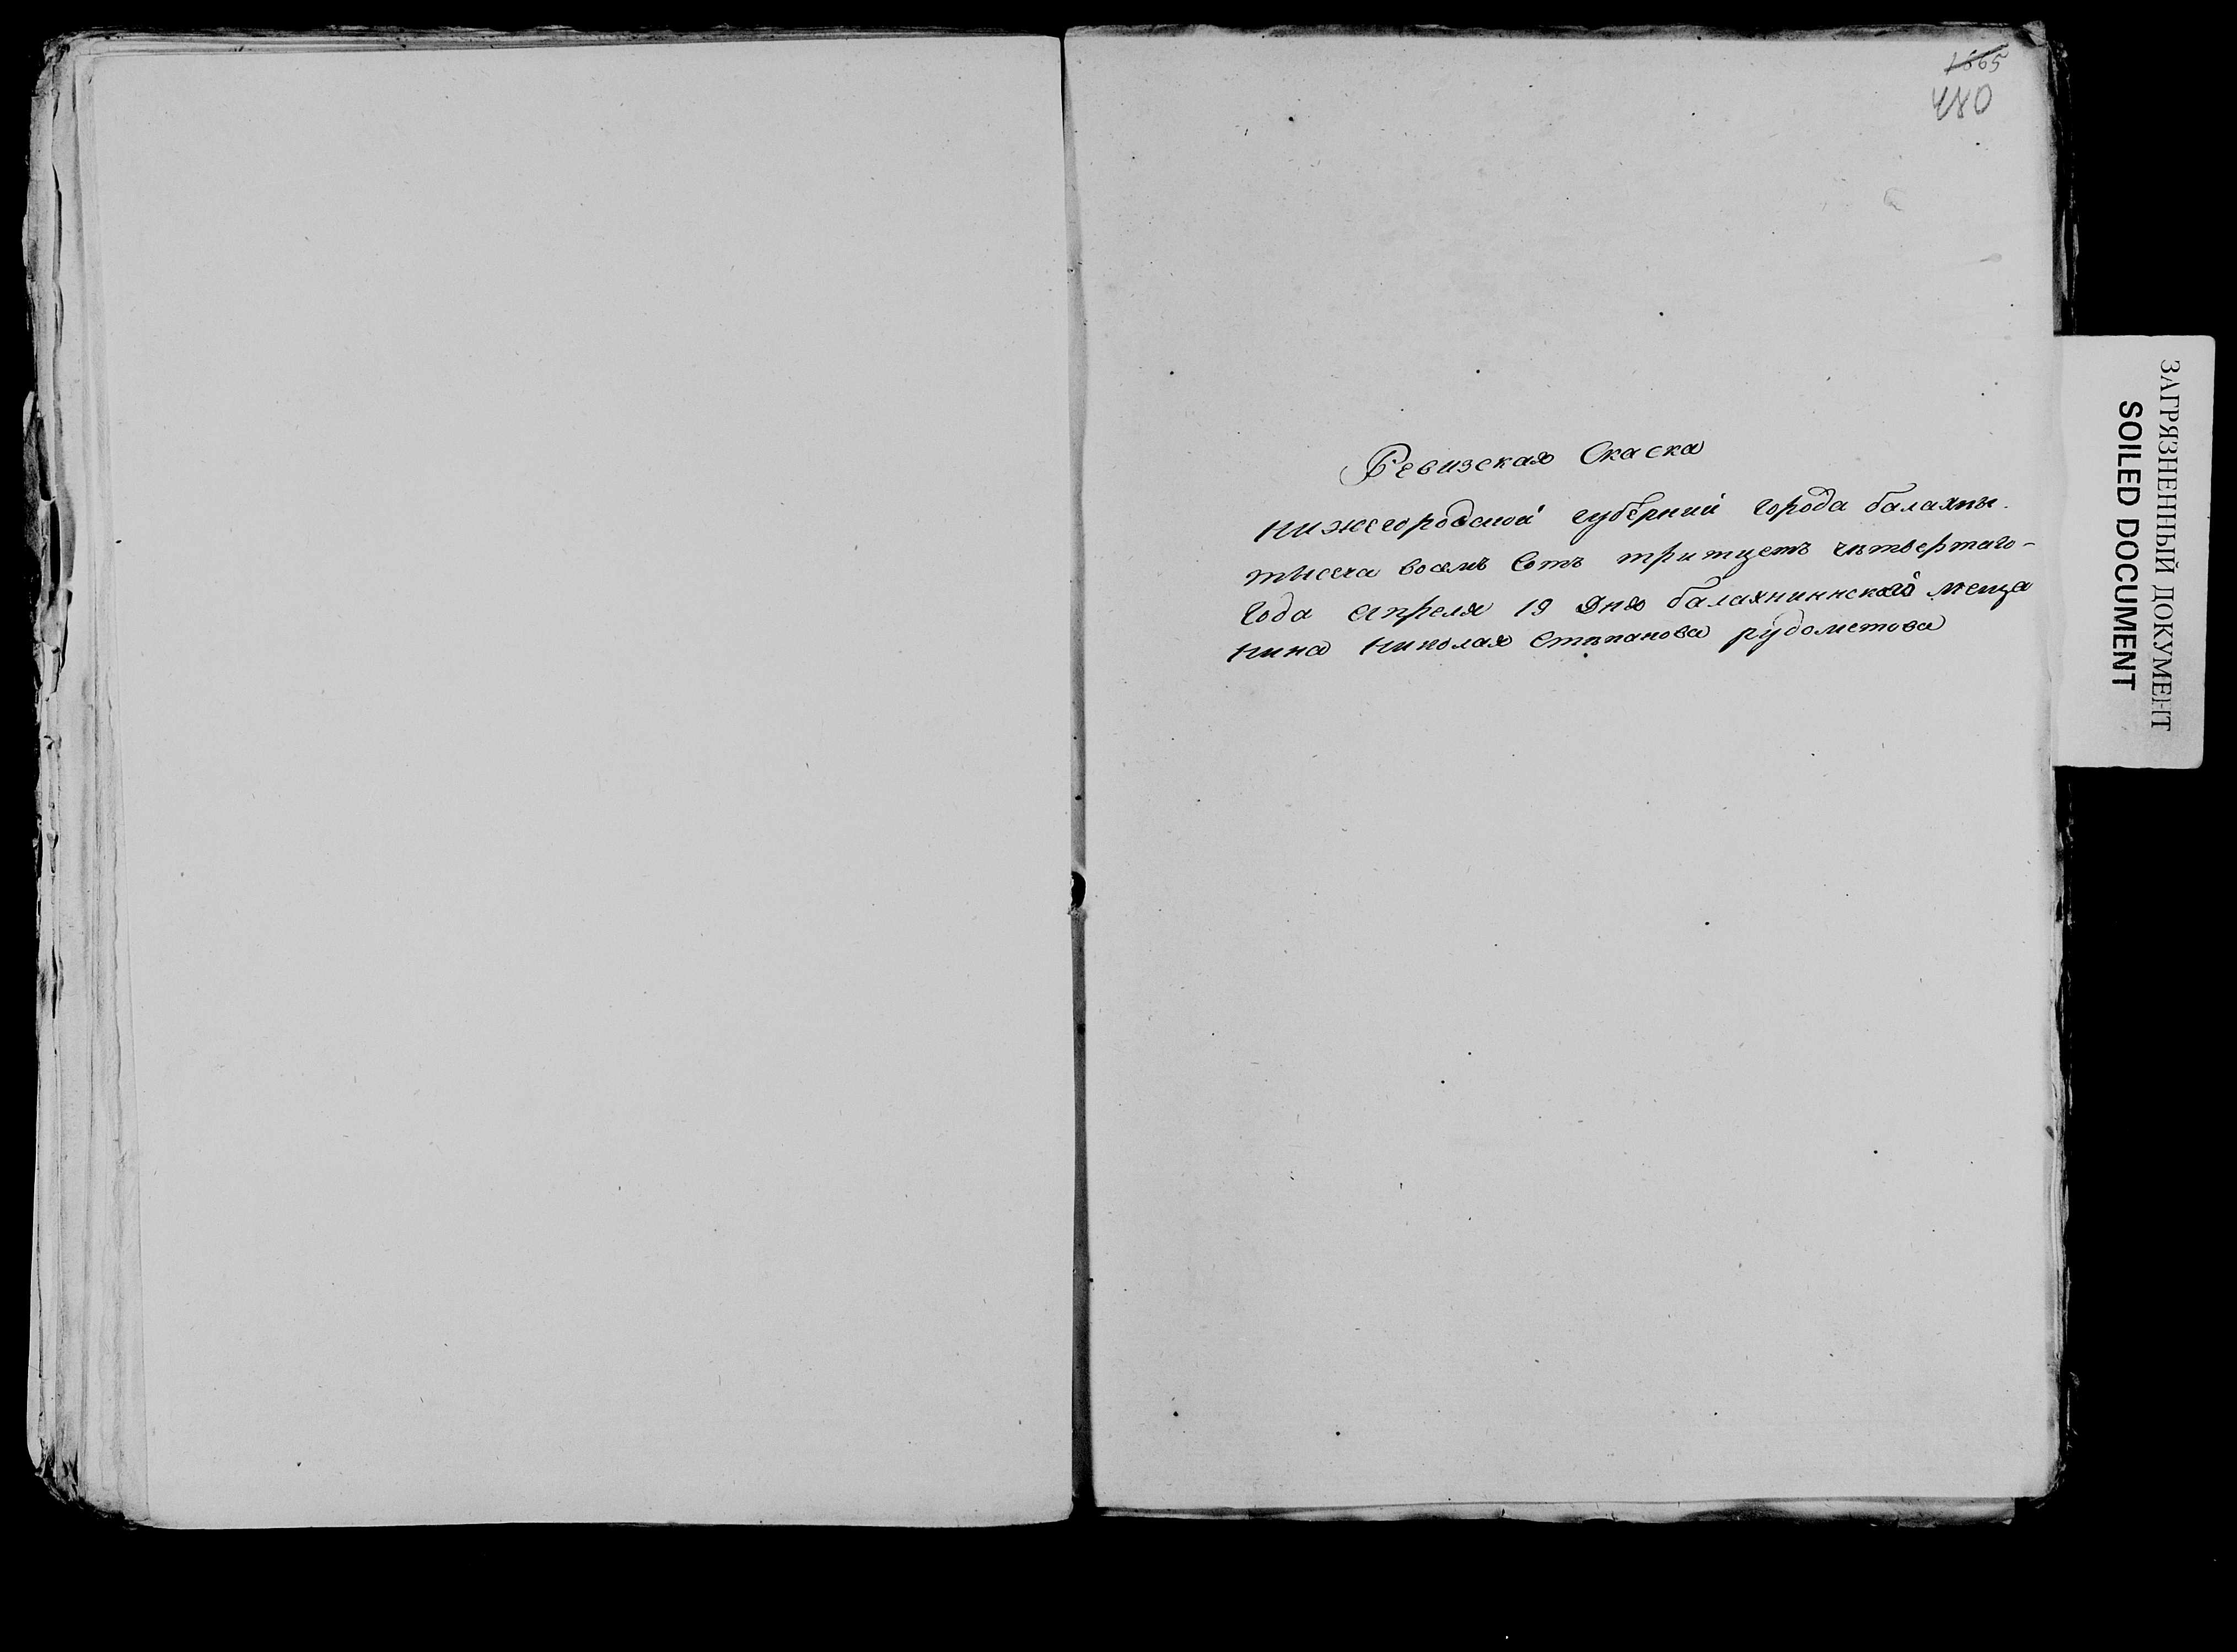 1865
480
Ревизская Скаска
нижегородской губерний города балахны.
тысеча восемь Сотъ тритцеть четвертаго-
Года апреля 19 дня балахнинскаго меща
нина николая Степанова рудометова
ЗАГРЯЗНЕННЫЙ ДОКУМЕНТ
SOILED DOCUMENT